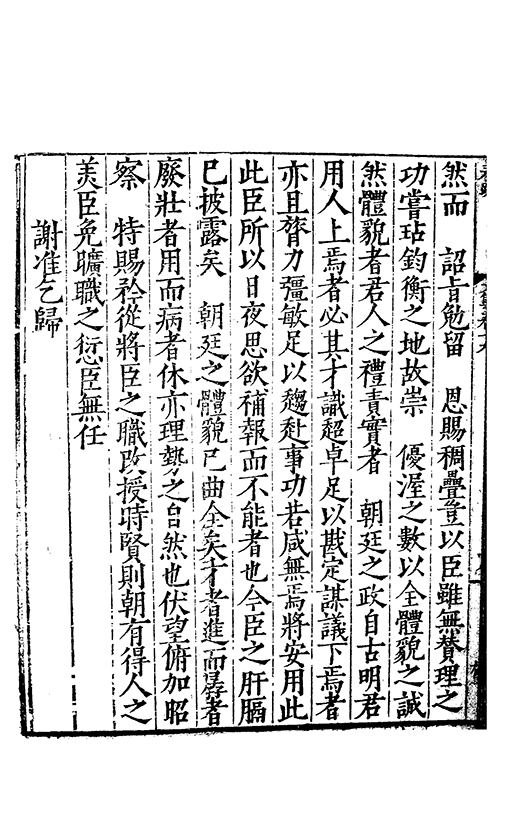 然而　詔旨勉留　恩賜稠疊豈以臣雖無贊理之
功嘗玷鈞衡之地故崇　優渥之數以全體貌之誠
然體貌者君人之禮責實者　朝廷之政自古明君
用人上焉者必其才識超卓足以戡定謀議下焉者
亦且膂力彊敏足以趨赴事功若咸無焉將安用此
此臣所以日夜思欲補報而不能者也今臣之肝膈
已披露矣　朝廷之體貌已曲全矣才者進而孱者
廢壯者用而病者休亦理勢之自然也伏望俯加昭
察　特賜矜從將臣之職改授時賢則朝有得人之
美臣免曠職之愆臣無任
謝准乞歸